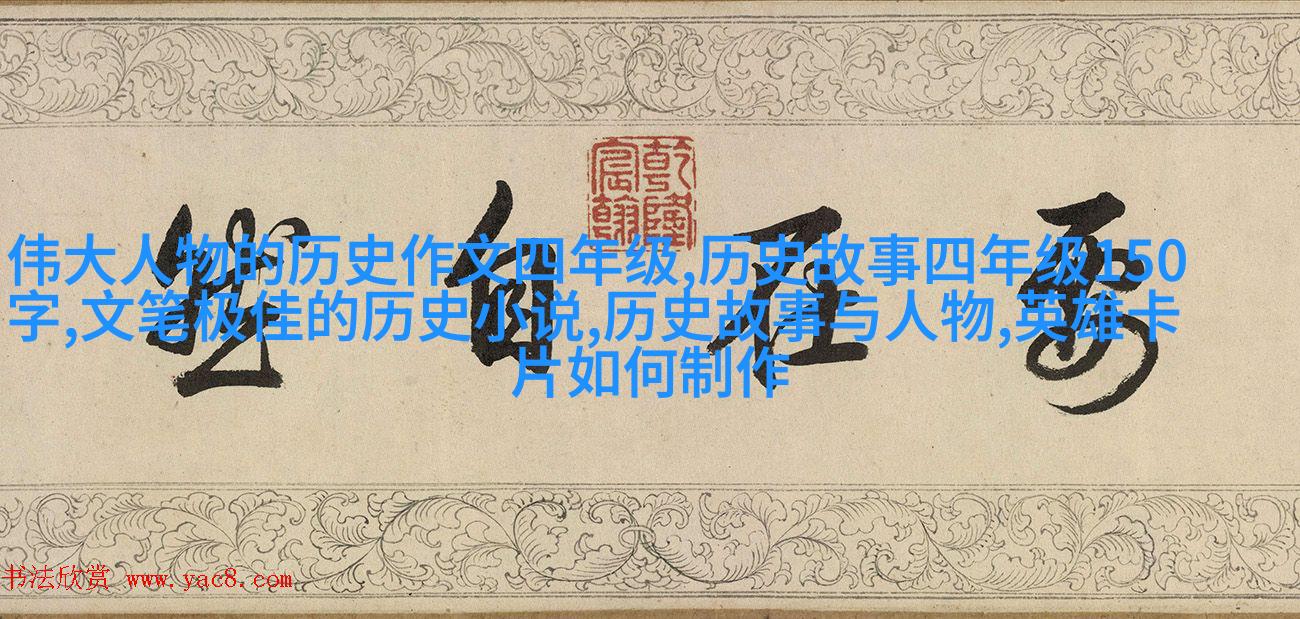 乾隆
宸翰
在自
伟大人物的历史作文四年级,历史故事四年级150
字,文笔极佳的历史小说,历史故事与人物,英雄卡
片如何制作
书法欣赏 www.yac8.com